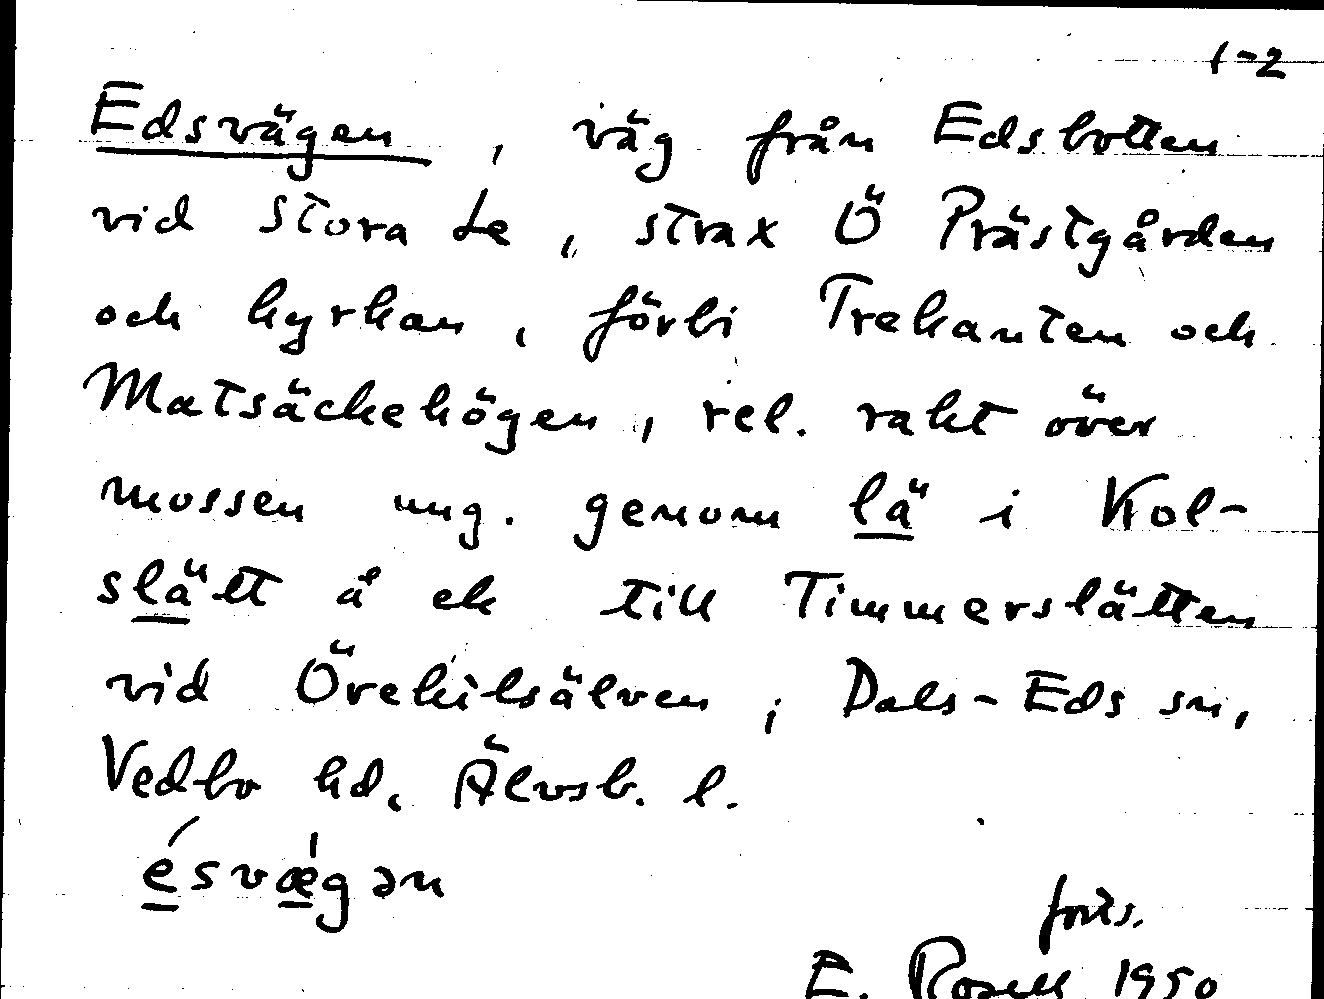 1-2
Edsvägen, väg från Edsbotten
vid Stora Le, strax Ö Prästgården
och kyrkan, förbi Trekanten och
Matsäckehögen, rel. rakt över
mossen ung. genom lä i Kol-
slätt å ek till Timmerslätten
vid Örekilsälven, Dals-Eds sn,
Vedbo hd, Älvsb. l.
ésvǽgən
forts.
E. Rosell 1950